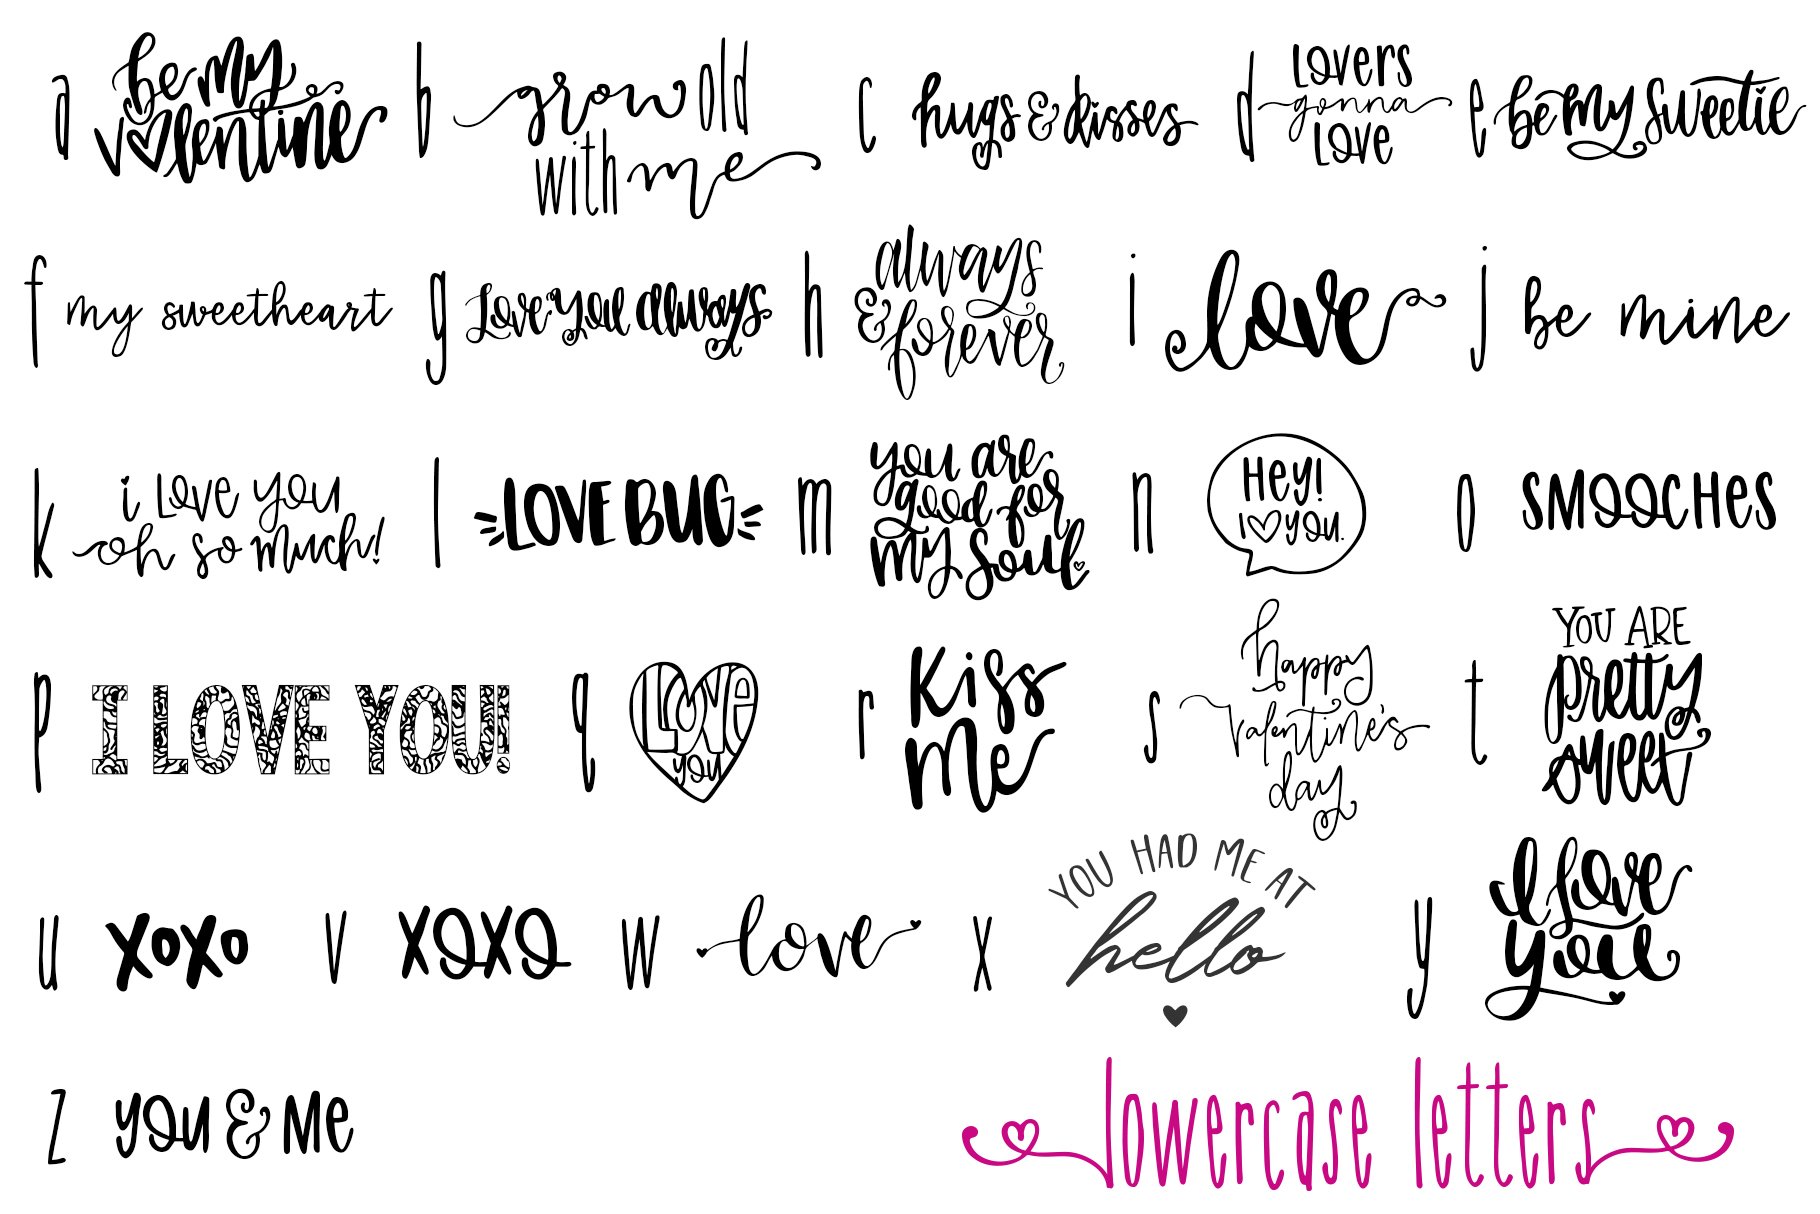 a be my
valentine
b grow old
with me
c hugs & kisses
d Lovers
gonna
Love
e be my sweetie
f my sweetheart
g Love you always
h always
& forever
i love
j be mine
k i Love you
oh so much!
l LOVE BUG
m you are
good for
my soul
n Hey!
I ♡ you.
o SMOOCHes
p I LOVE YOU!
q I LOVE
you
r Kiss
me
s happy
valentine's
day
t YOU ARE
pretty
sweet
u xoxo
v XOXO
w love
x YOU HAD ME AT
hello
y I love
you
z you & Me
lowercase letters